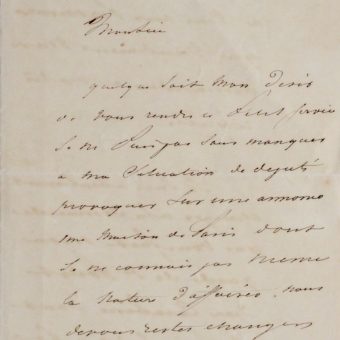 Monsieur
quelque soit mon desir
de vous rendre ce petit service
Je ne puis pas sans manquer
a ma situation de deputé
provoquer sur une
une maison de Paris dont
Je ne connais pas meme
la nature d'affaires. nous
devons rester etrangers